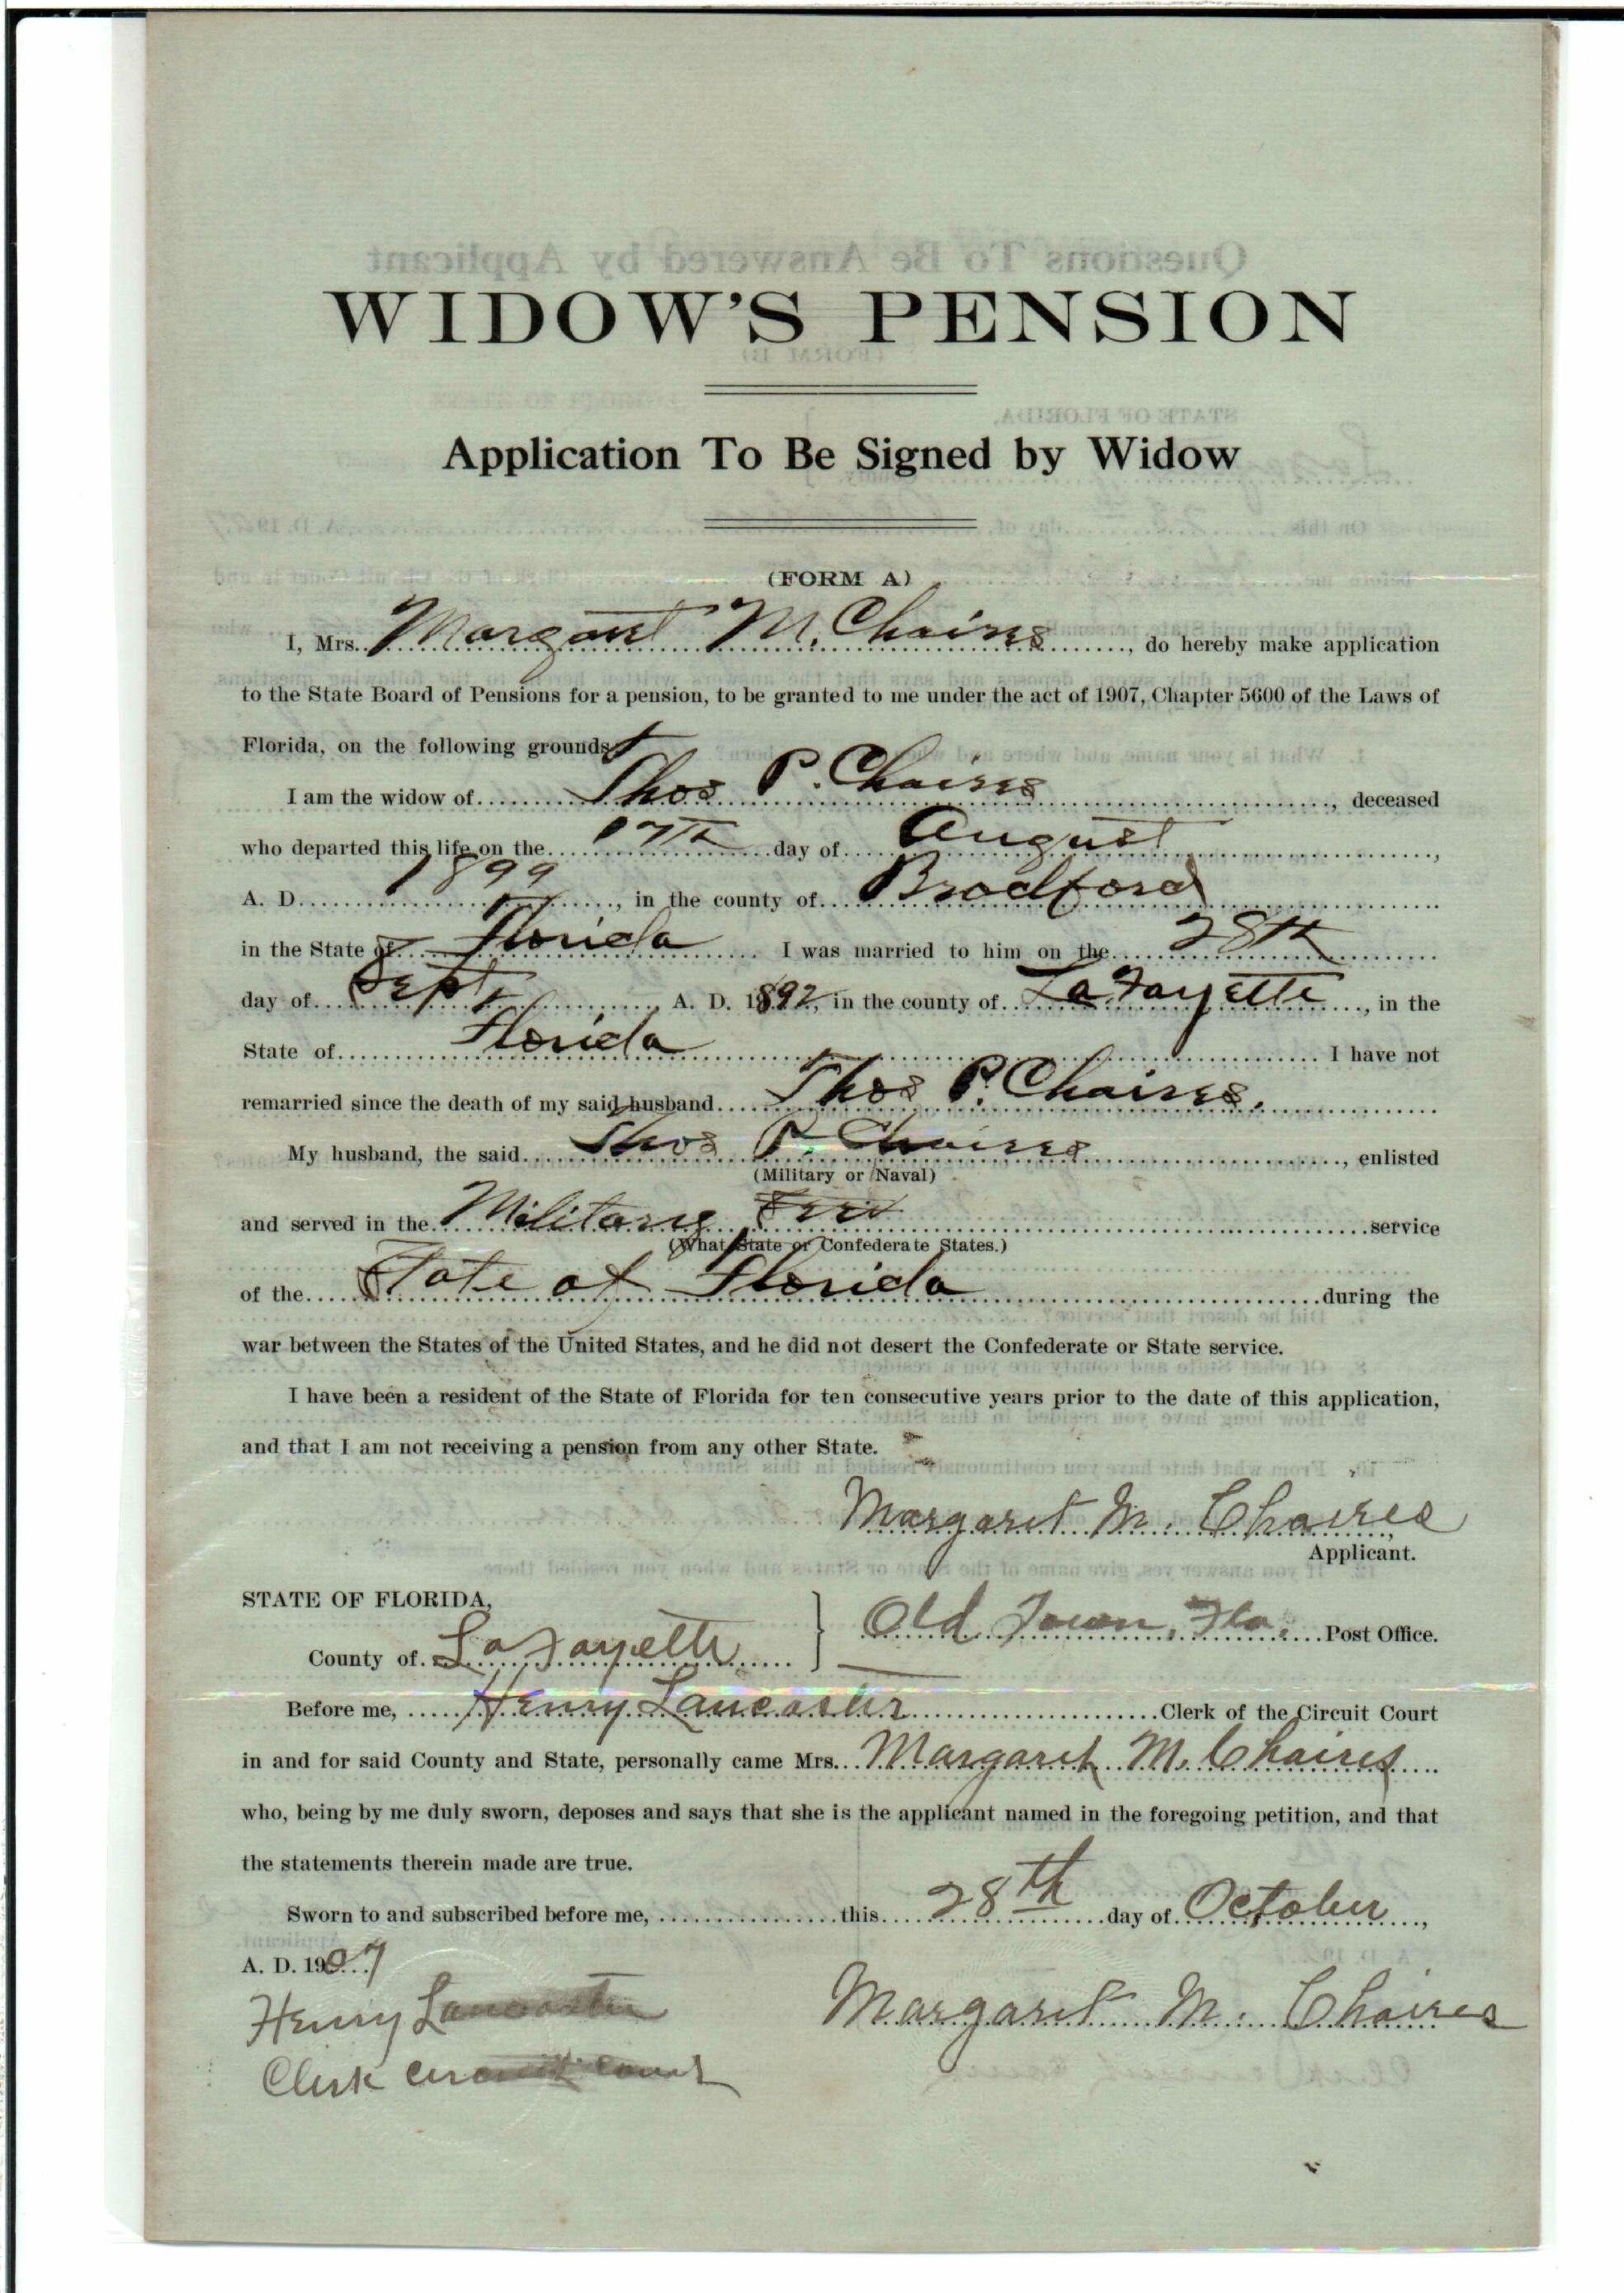 WIDOW'S PENSION
Application To Be Signed by Widow
(FORM A)
I, Mrs. Margaret M. Chaires, do hereby make application
to the State Board of Pensions for a pension, to be granted to me under the act of 1907, Chapter 5600 of the Laws of
Florida, on the following grounds
I am the widow of Thos P. Chaires, deceased
who departed this life on the 17th day of August,
A. D. 1899, in the county of Bradford
in the State of Florida I was married to him on the 28th
day of Sept, A. D. 1892, in the county of LaFayette, in the
State of Florida I have not
remarried since the death of my said husband Thos P. Chaires.
My husband, the said Thos P. Chaires, enlisted
(Military or Naval)
and served in the Military service
(What State or Confederate States.)
of the State of Florida during the
war between the States of the United States, and he did not desert the Confederate or State service.
I have been a resident of the State of Florida for ten consecutive years prior to the date of this application,
and that I am not receiving a pension from any other State.
Margaret M. Chaires
Applicant.
STATE OF FLORIDA,
Old Town, Fla. Post Office.
County of LaFayette
Before me, Henry Lancaster Clerk of the Circuit Court
in and for said County and State, personally came Mrs. Margaret M. Chaires
who, being by me duly sworn, deposes and says that she is the applicant named in the foregoing petition, and that
the statements therein made are true.
Sworn to and subscribed before me, this 28th day of October,
A. D. 1907
Henry Lancaster
Margaret M. Chaires
Clerk Circuit Court